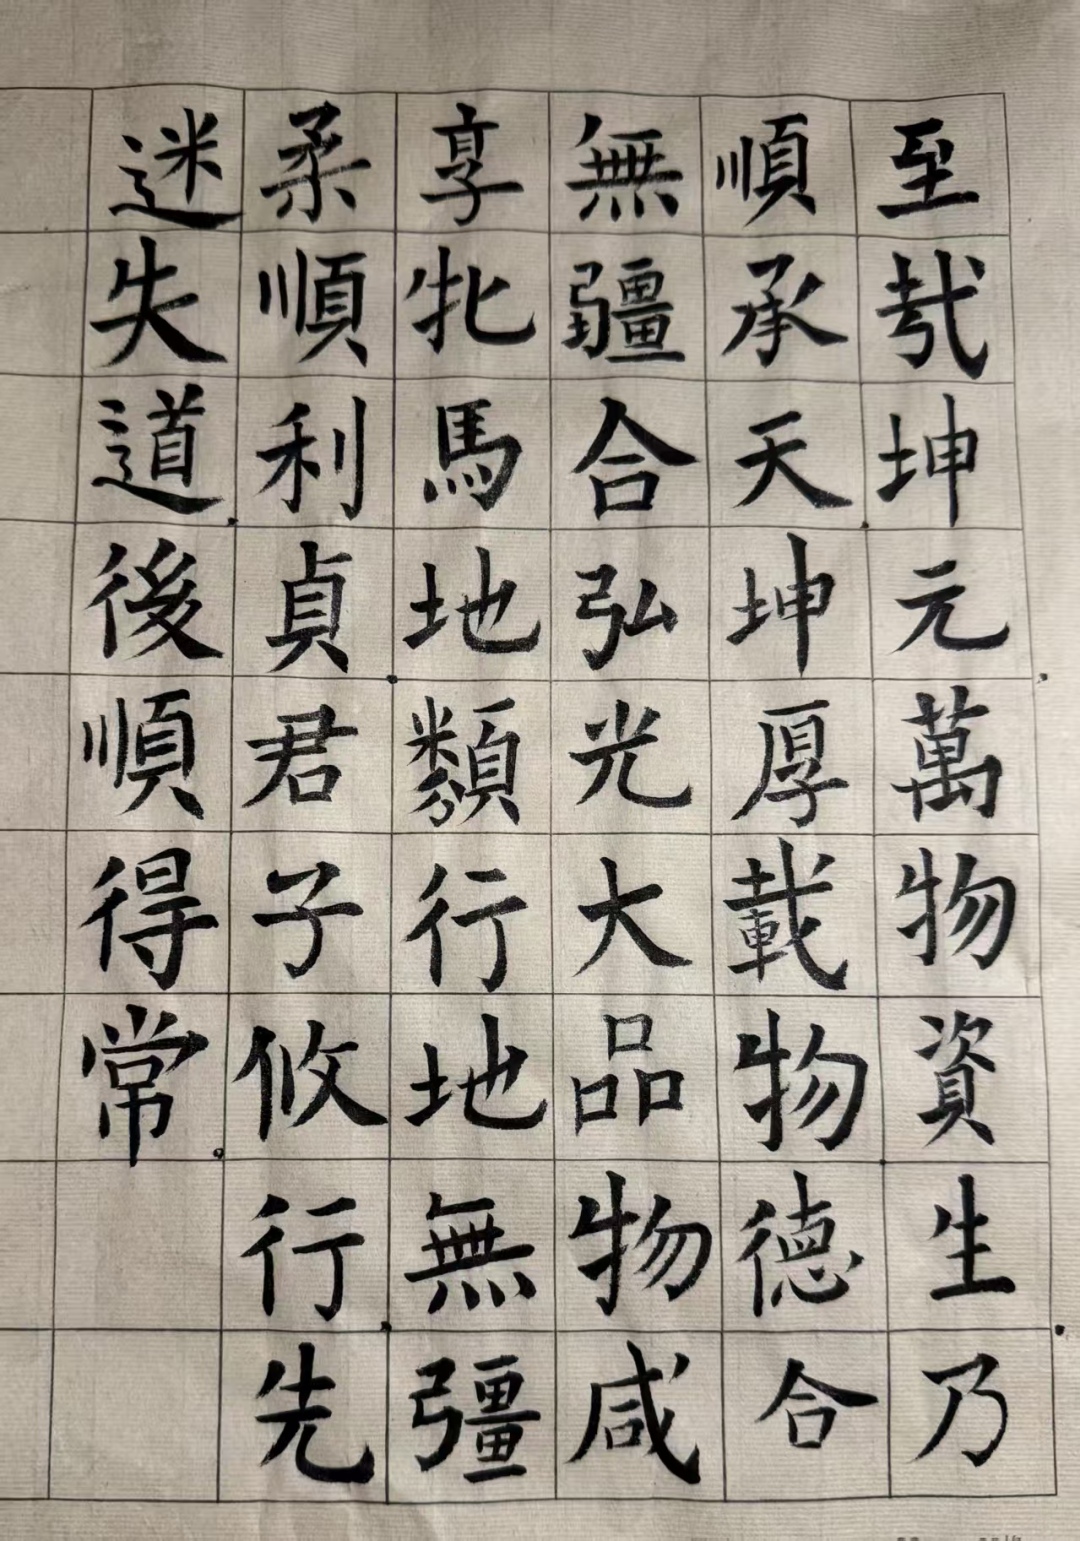 至哉坤元萬物資生乃
順承天坤厚載物德合
無疆合弘光大品物咸
享牝馬地類行地無疆
柔順利貞君子攸行先
迷失道後順得常